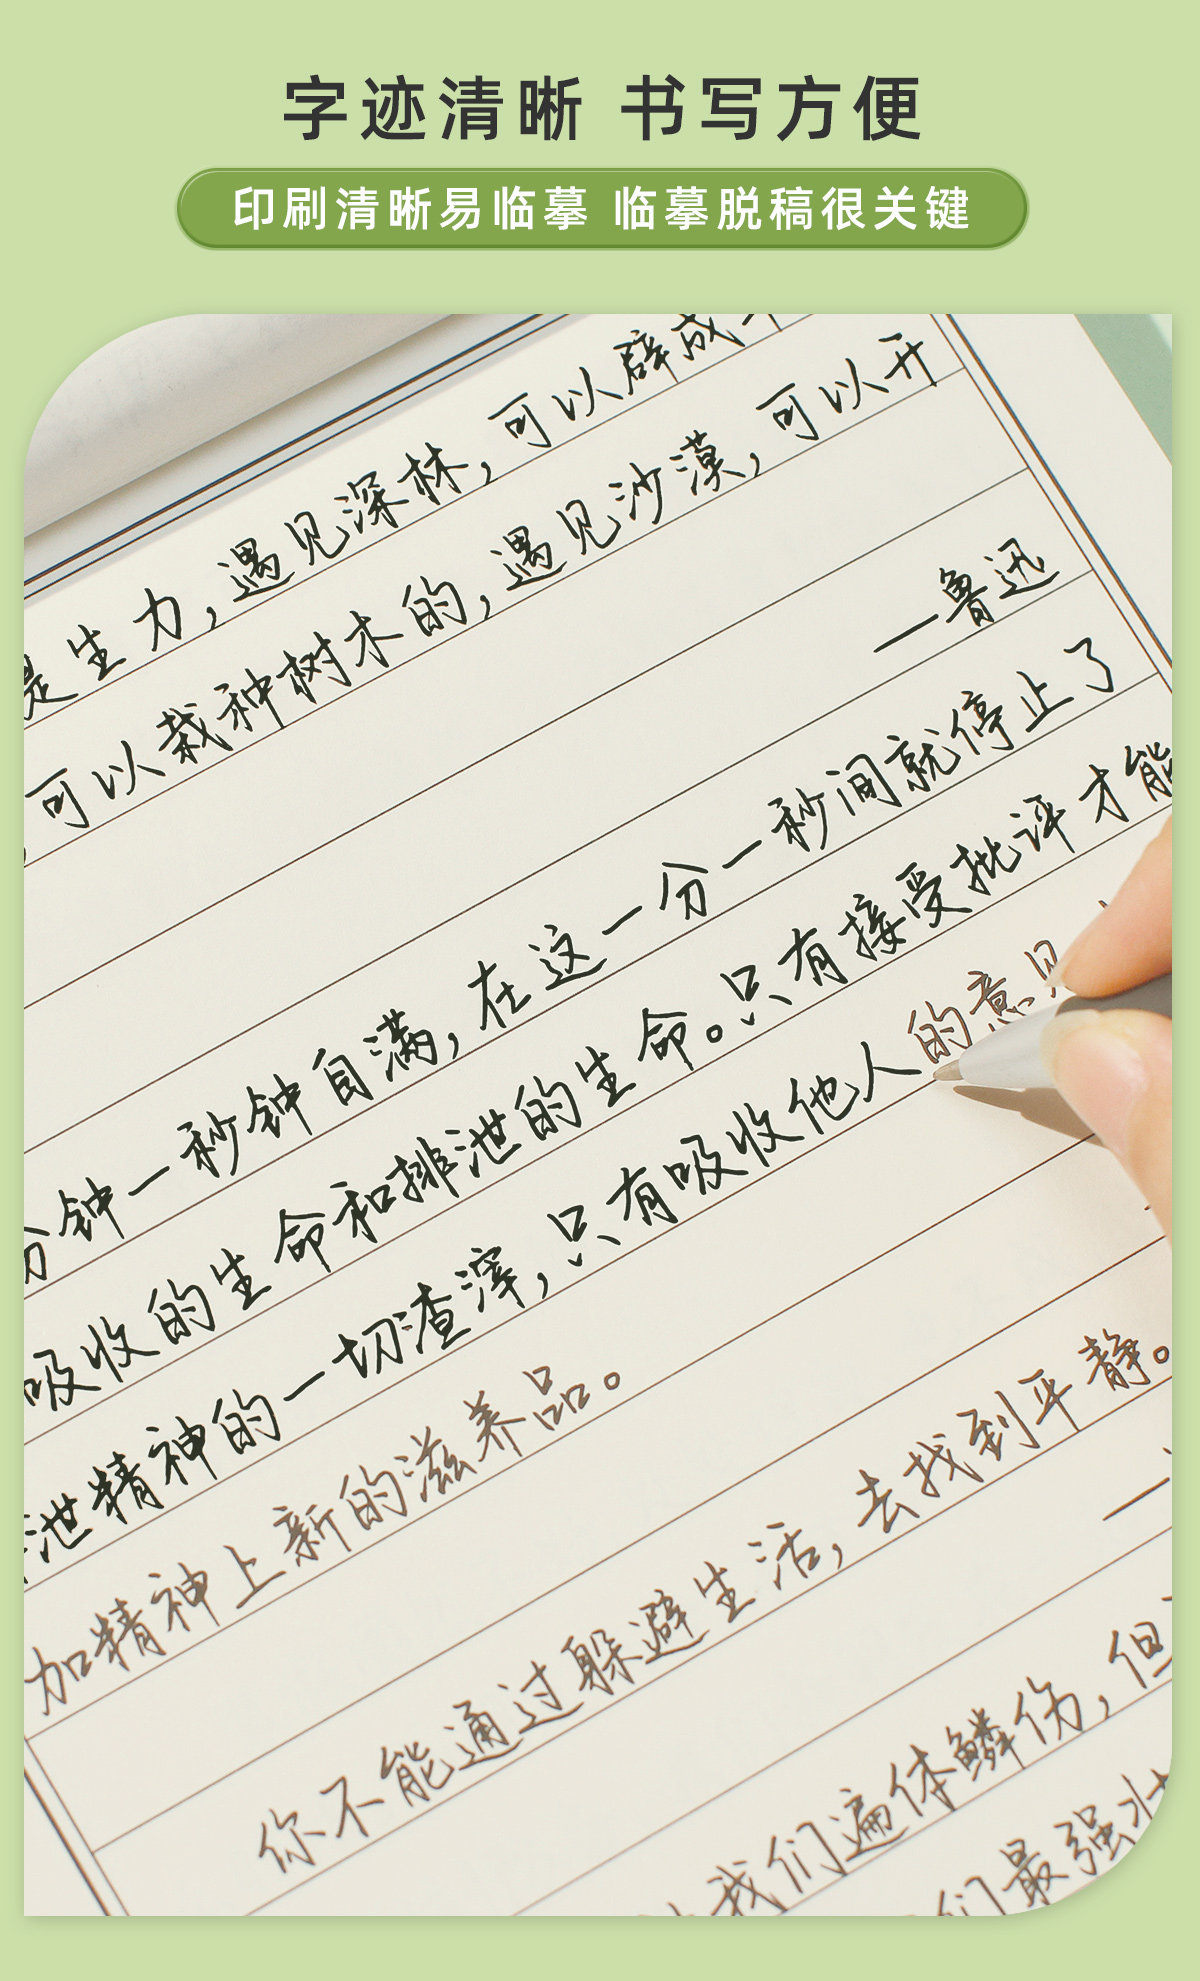 字迹清晰 书写方便
印刷清晰易临摹 临摹脱稿很关键
是生力，遇见深林，可以辟成平
，可以栽种树木的，遇见沙漠，可以开
—鲁迅
分钟一秒钟自满，在这一分一秒间就停止了
吸收的生命和排泄的生命。只有接受批评才能
排泄精神的一切渣滓，只有吸收他人的意见
加精神上新的滋养品。
你不能通过躲避生活，去找到平静。
我们遍体鳞伤，但
们最强壮